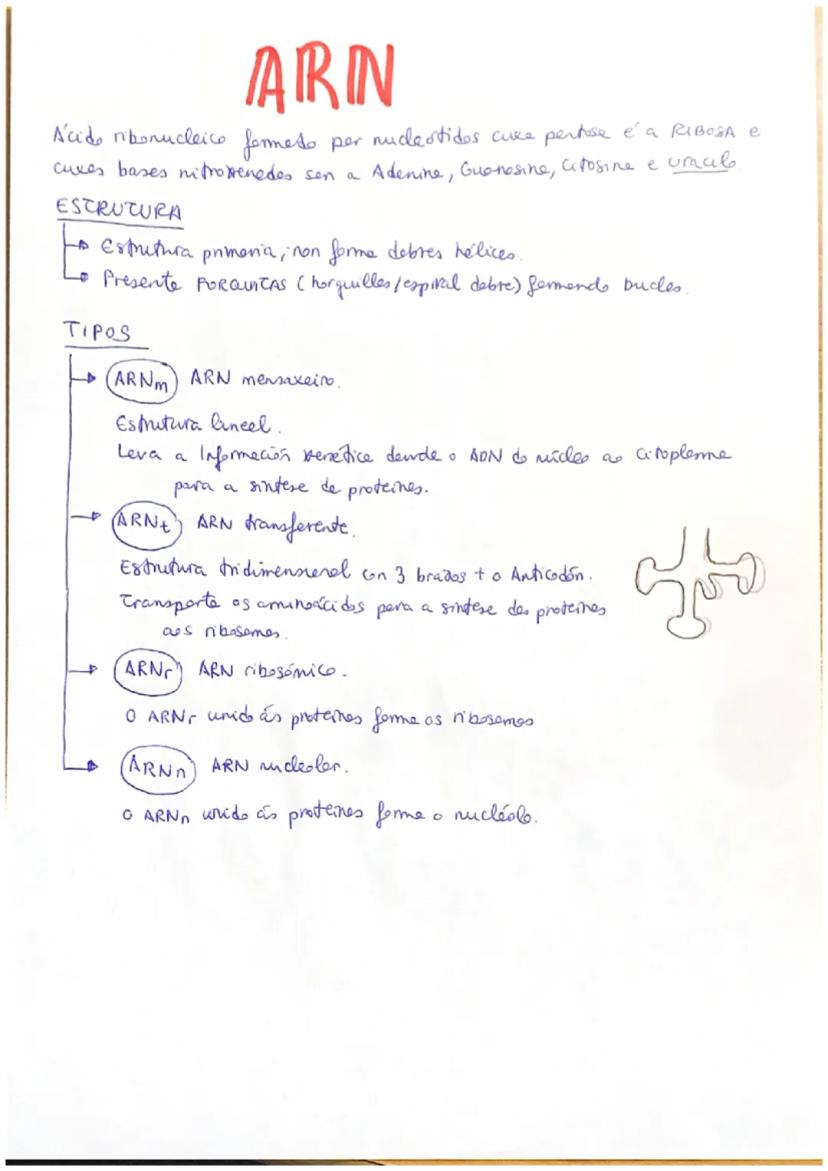 ARN
Ácido ribonucleico formado por nucleótidos cuxa pentosa é a RIBOSA e
cuxas bases nitroxenadas son a Adenina, Guanosina, Citosina e uracilo.
ESTRUTURA
Estrutura primaria, non forma dobres hélices.
Presenta FORQUITAS (horquillas/espiral dobre) formando bucles.
TIPOS
ARNm ARN mensaxeiro.
Estrutura lineal.
Leva a Información xenética dende o ADN do núcleo ao citoplasma
para a síntese de proteínas.
ARNt ARN transferente.
Estrutura tridimensional con 3 brazos + o Anticodón.
Transporta os aminoácidos para a síntese das proteínas
aos ribosomas.
ARNr ARN ribosómico.
O ARNr unido ás proteínas forma os ribosomas
ARNn ARN nucleolar.
O ARNn unido ás proteínas forma o nucléolo.